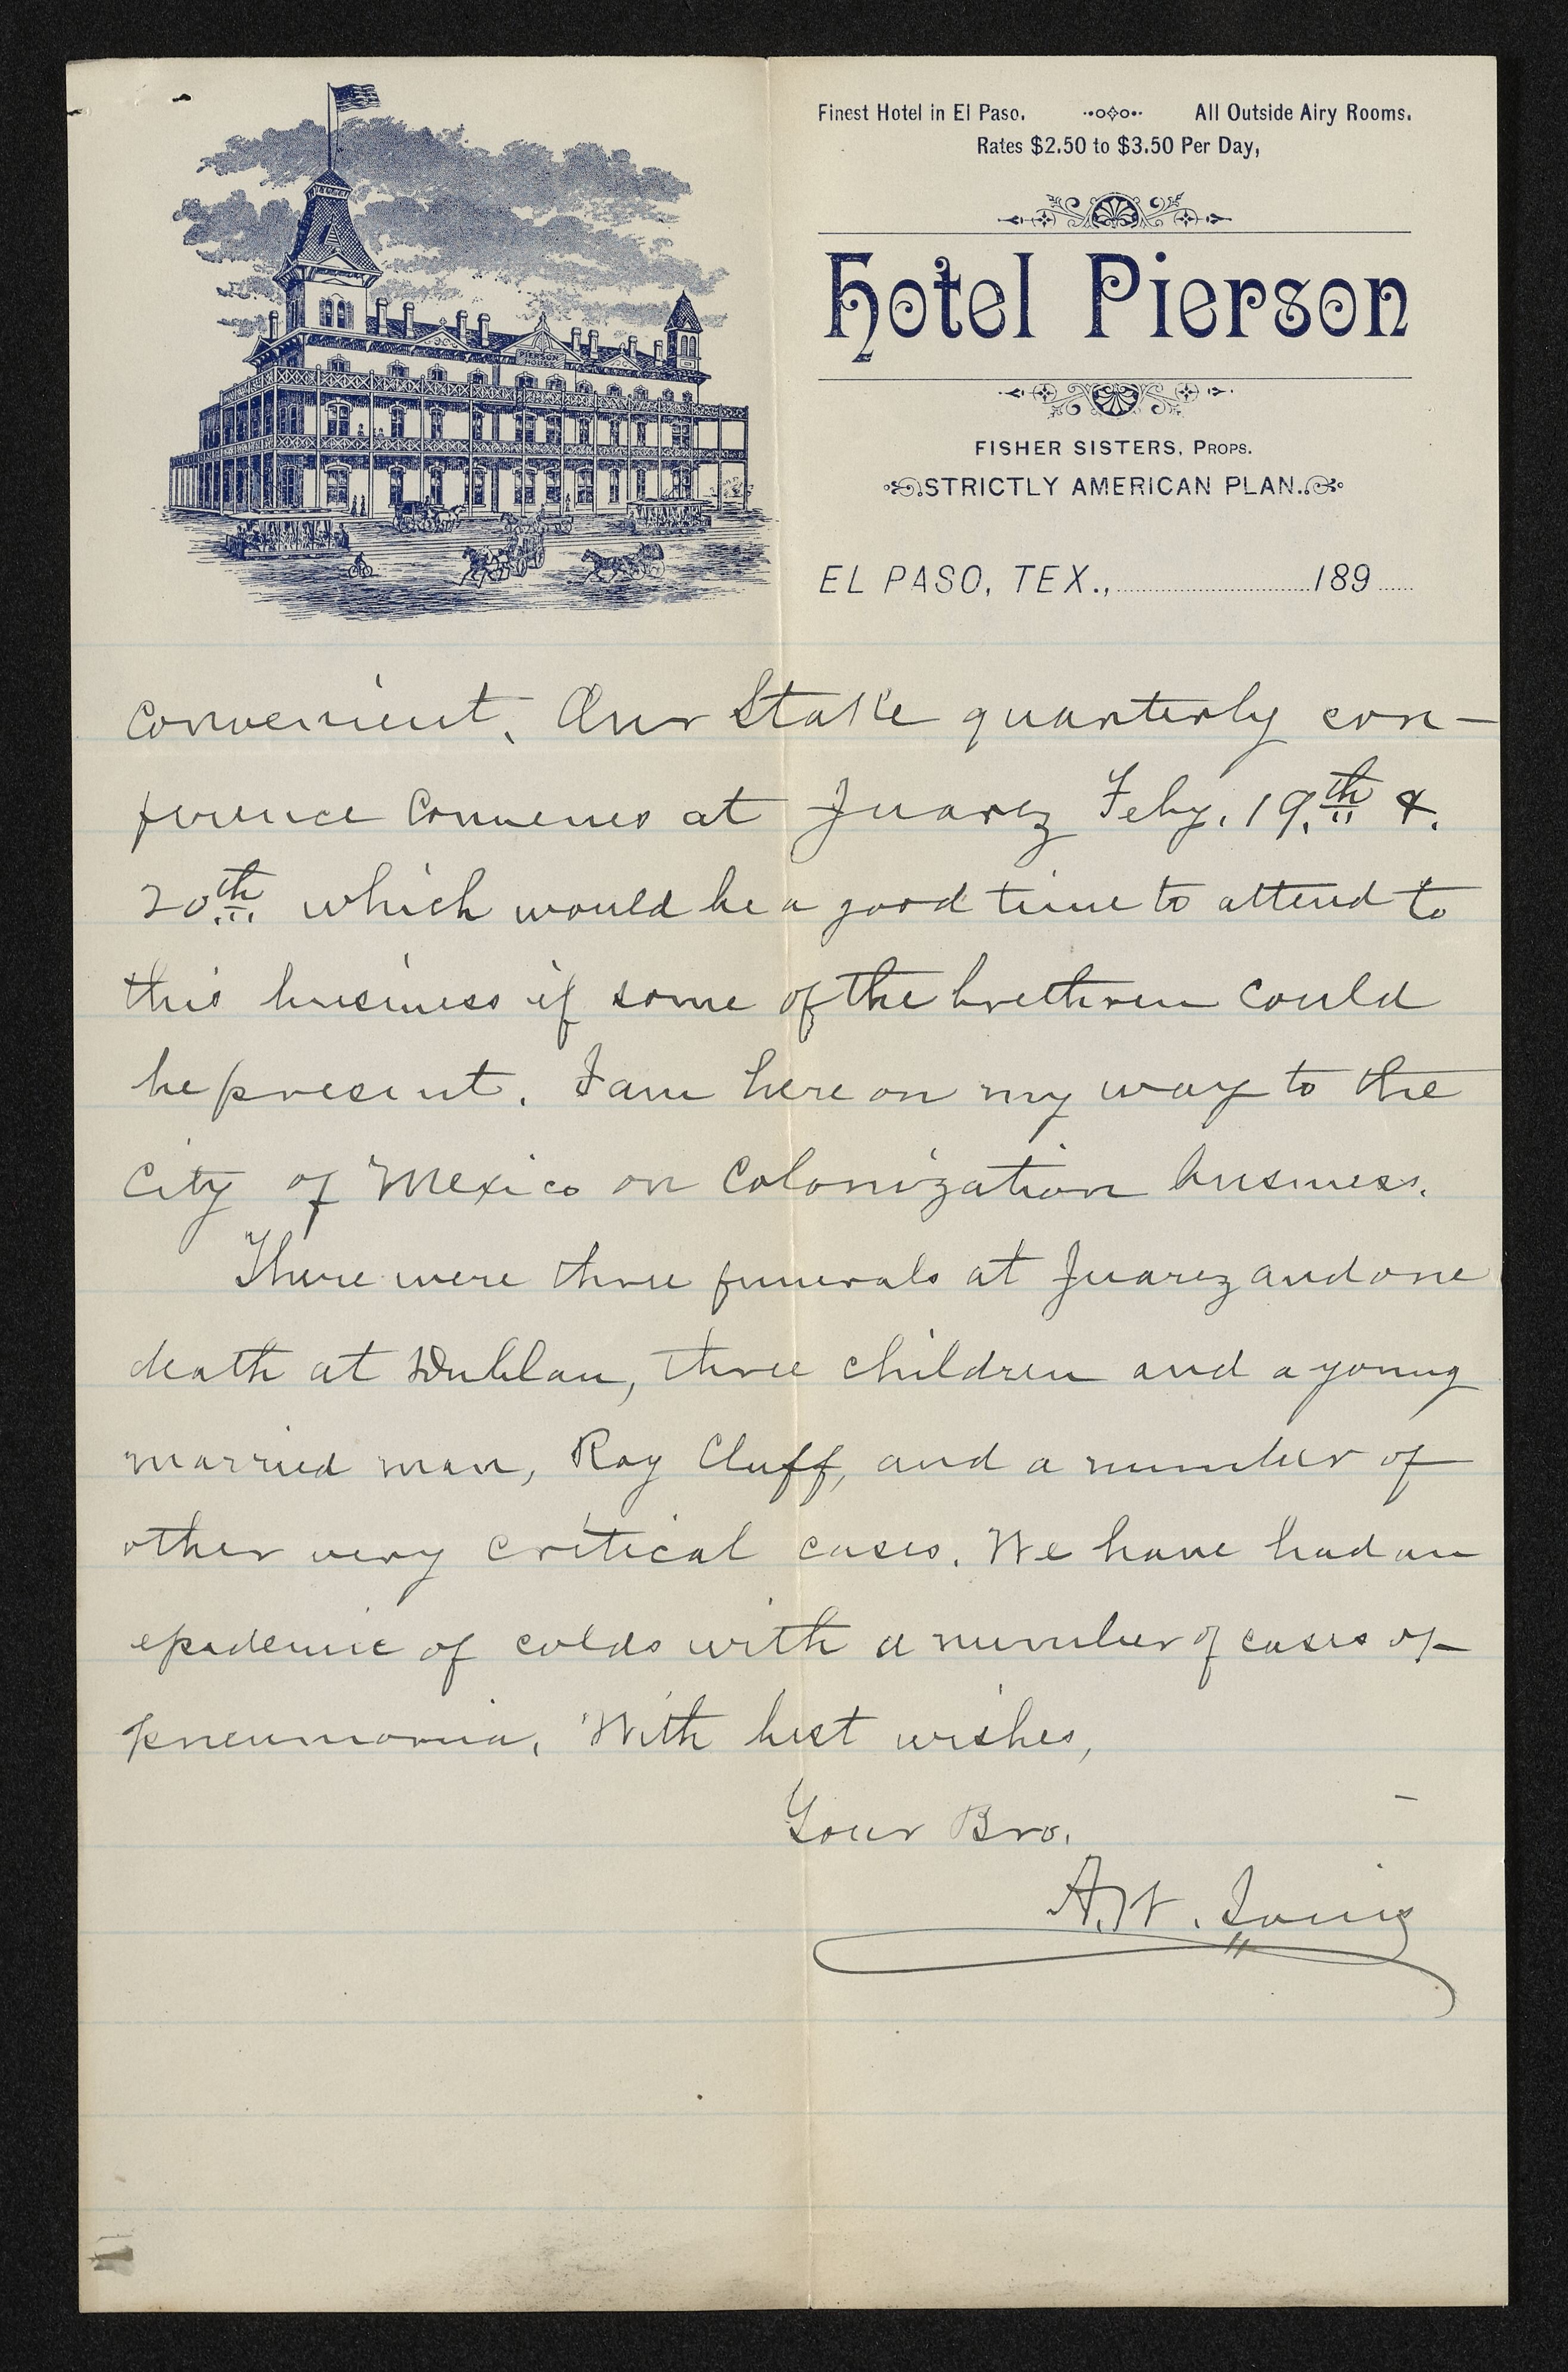 Finest Hotel in El Paso. All Outside Airy Rooms.
Rates $2.50 to $3.50 Per Day,
Hotel Pierson
PIERSON
HOUSE
FISHER SISTERS, PROPS.
STRICTLY AMERICAN PLAN.
EL PASO, TEX., 189
convenient. Our Stake quarterly con-
ference convenes at Juarez Feby. 19th &.
20th which would be a good time to attend to
this business if some of the brethren could
be present. I am here on my way to the
City of Mexico on Colonization business.
There were three funerals at Juarez and one
death at Dublan, three children and a young
married man, Roy Cluff, and a number of
other very critical cases. We have had an
epidemic of colds with a number of cases of
pneumonia. With best wishes,
Your Bro.
A.W. Ivins